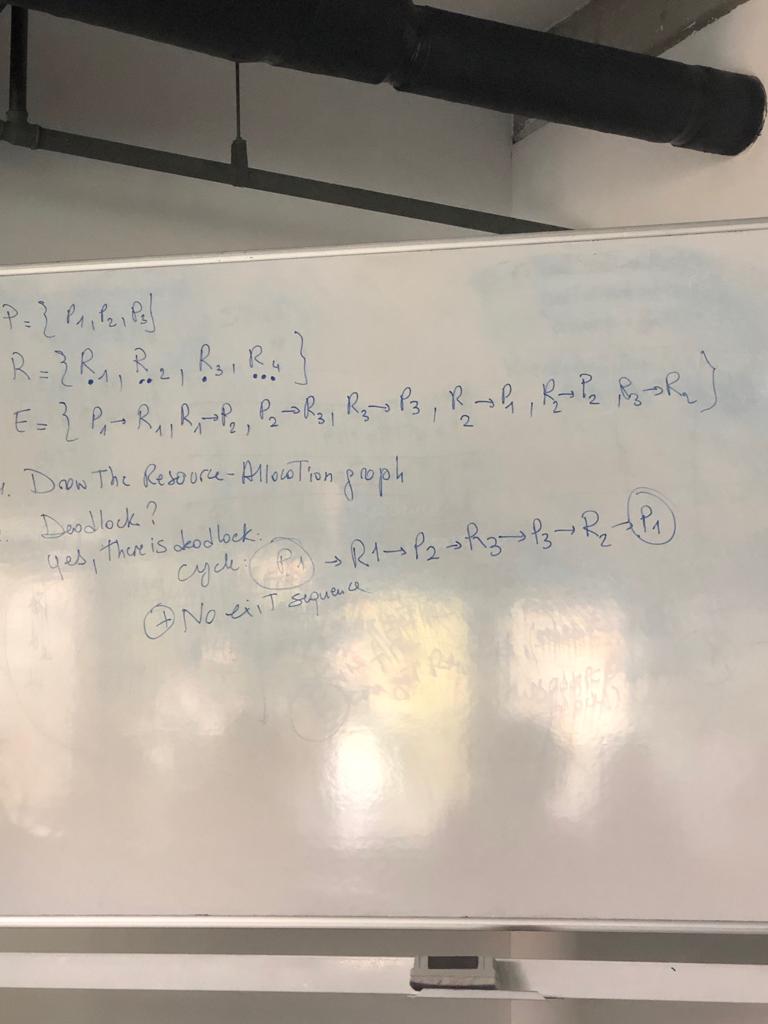 P={ P1, P2, P3}
R={R1, R2, R3, R4}
E={ P1→R1, R1→P2, P2→R3, R3→P3, R2→P1, R2→P2, P3→R2}
1. Draw The Resource-Allocation graph
Deadlock?
yes, there is deadlock:
cycle: P1→R1→P2→R3→P3→R2→P1
+ No exit sequence